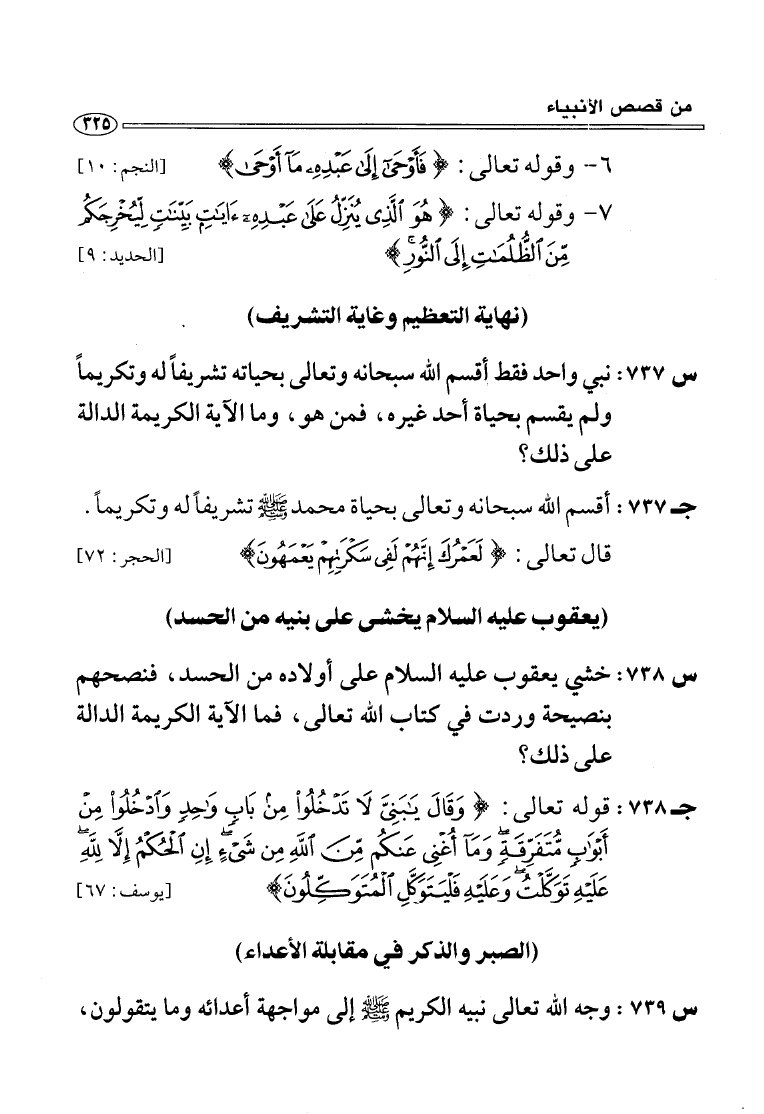 من قصص الأنبياء
٣٢٥
٦- وقوله تعالى : ﴿ فَأَوْحَىٰٓ إِلَىٰ عَبْدِهِۦ مَآ أَوْحَىٰ ﴾ [النجم: ١٠]
٧- وقوله تعالى : ﴿ هُوَ ٱلَّذِى يُنَزِّلُ عَلَىٰ عَبْدِهِۦٓ ءَايَٰتٍۭ بَيِّنَٰتٍ لِّيُخْرِجَكُم
مِّنَ ٱلظُّلُمَٰتِ إِلَى ٱلنُّورِ ۚ ﴾ [الحديد: ٩]
(نهاية التعظيم وغاية التشريف)
س ٧٣٧ : نبي واحد فقط أقسم الله سبحانه وتعالى بحياته تشريفاً له وتكريماً
ولم يقسم بحياة أحد غيره، فمن هو، وما الآية الكريمة الدالة
على ذلك؟
جـ ٧٣٧ : أقسم الله سبحانه وتعالى بحياة محمد ﷺ تشريفاً له وتكريماً .
قال تعالى : ﴿ لَعَمْرُكَ إِنَّهُمْ لَفِى سَكْرَتِهِمْ يَعْمَهُونَ ﴾ [الحجر: ٧٢]
(يعقوب عليه السلام يخشى على بنيه من الحسد)
س ٧٣٨ : خشي يعقوب عليه السلام على أولاده من الحسد، فنصحهم
بنصيحة وردت في كتاب الله تعالى، فما الآية الكريمة الدالة
على ذلك؟
جـ ٧٣٨ : قوله تعالى : ﴿ وَقَالَ يَٰبَنِىَّ لَا تَدْخُلُوا۟ مِنۢ بَابٍ وَٰحِدٍ وَٱدْخُلُوا۟ مِنْ
أَبْوَٰبٍ مُّتَفَرِّقَةٍ ۖ وَمَآ أُغْنِى عَنكُم مِّنَ ٱللَّهِ مِن شَىْءٍ ۖ إِنِ ٱلْحُكْمُ إِلَّا لِلَّهِ ۖ
عَلَيْهِ تَوَكَّلْتُ ۖ وَعَلَيْهِ فَلْيَتَوَكَّلِ ٱلْمُتَوَكِّلُونَ ﴾ [يوسف: ٦٧]
(الصبر والذكر في مقابلة الأعداء)
س ٧٣٩ : وجه الله تعالى نبيه الكريم ﷺ إلى مواجهة أعدائه وما يتقولون،